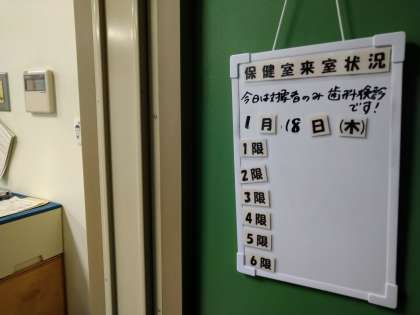 保健室来室状況
今日は対象者のみ 歯科検診
です!
1月 18日(木)
1限
2限
3限
4限
5限
6限